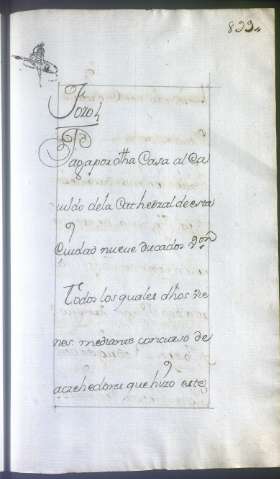 899
Foro
Paga por dha Casa al Ca
uildo dela Cathedral de esta
Ciudad nueve ducados Von
Todos los quales dhos Vie
nes mediante concurso de
acrehedores que hizo este